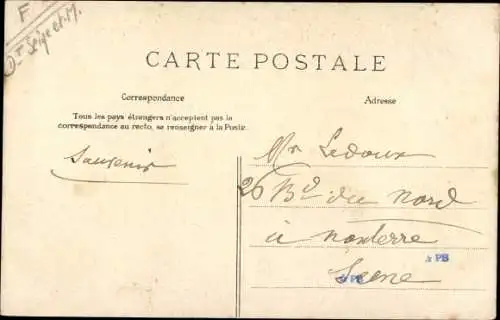 F
CARTE POSTALE
Correspondance
Tous les pays étrangers n'acceptent pas la
correspondance au recto, se renseigner à la Poste.
Souvenir
Adresse
Mr Ledoux
26 Bd du Nord
à Nanterre
Seine
& PB
& PB